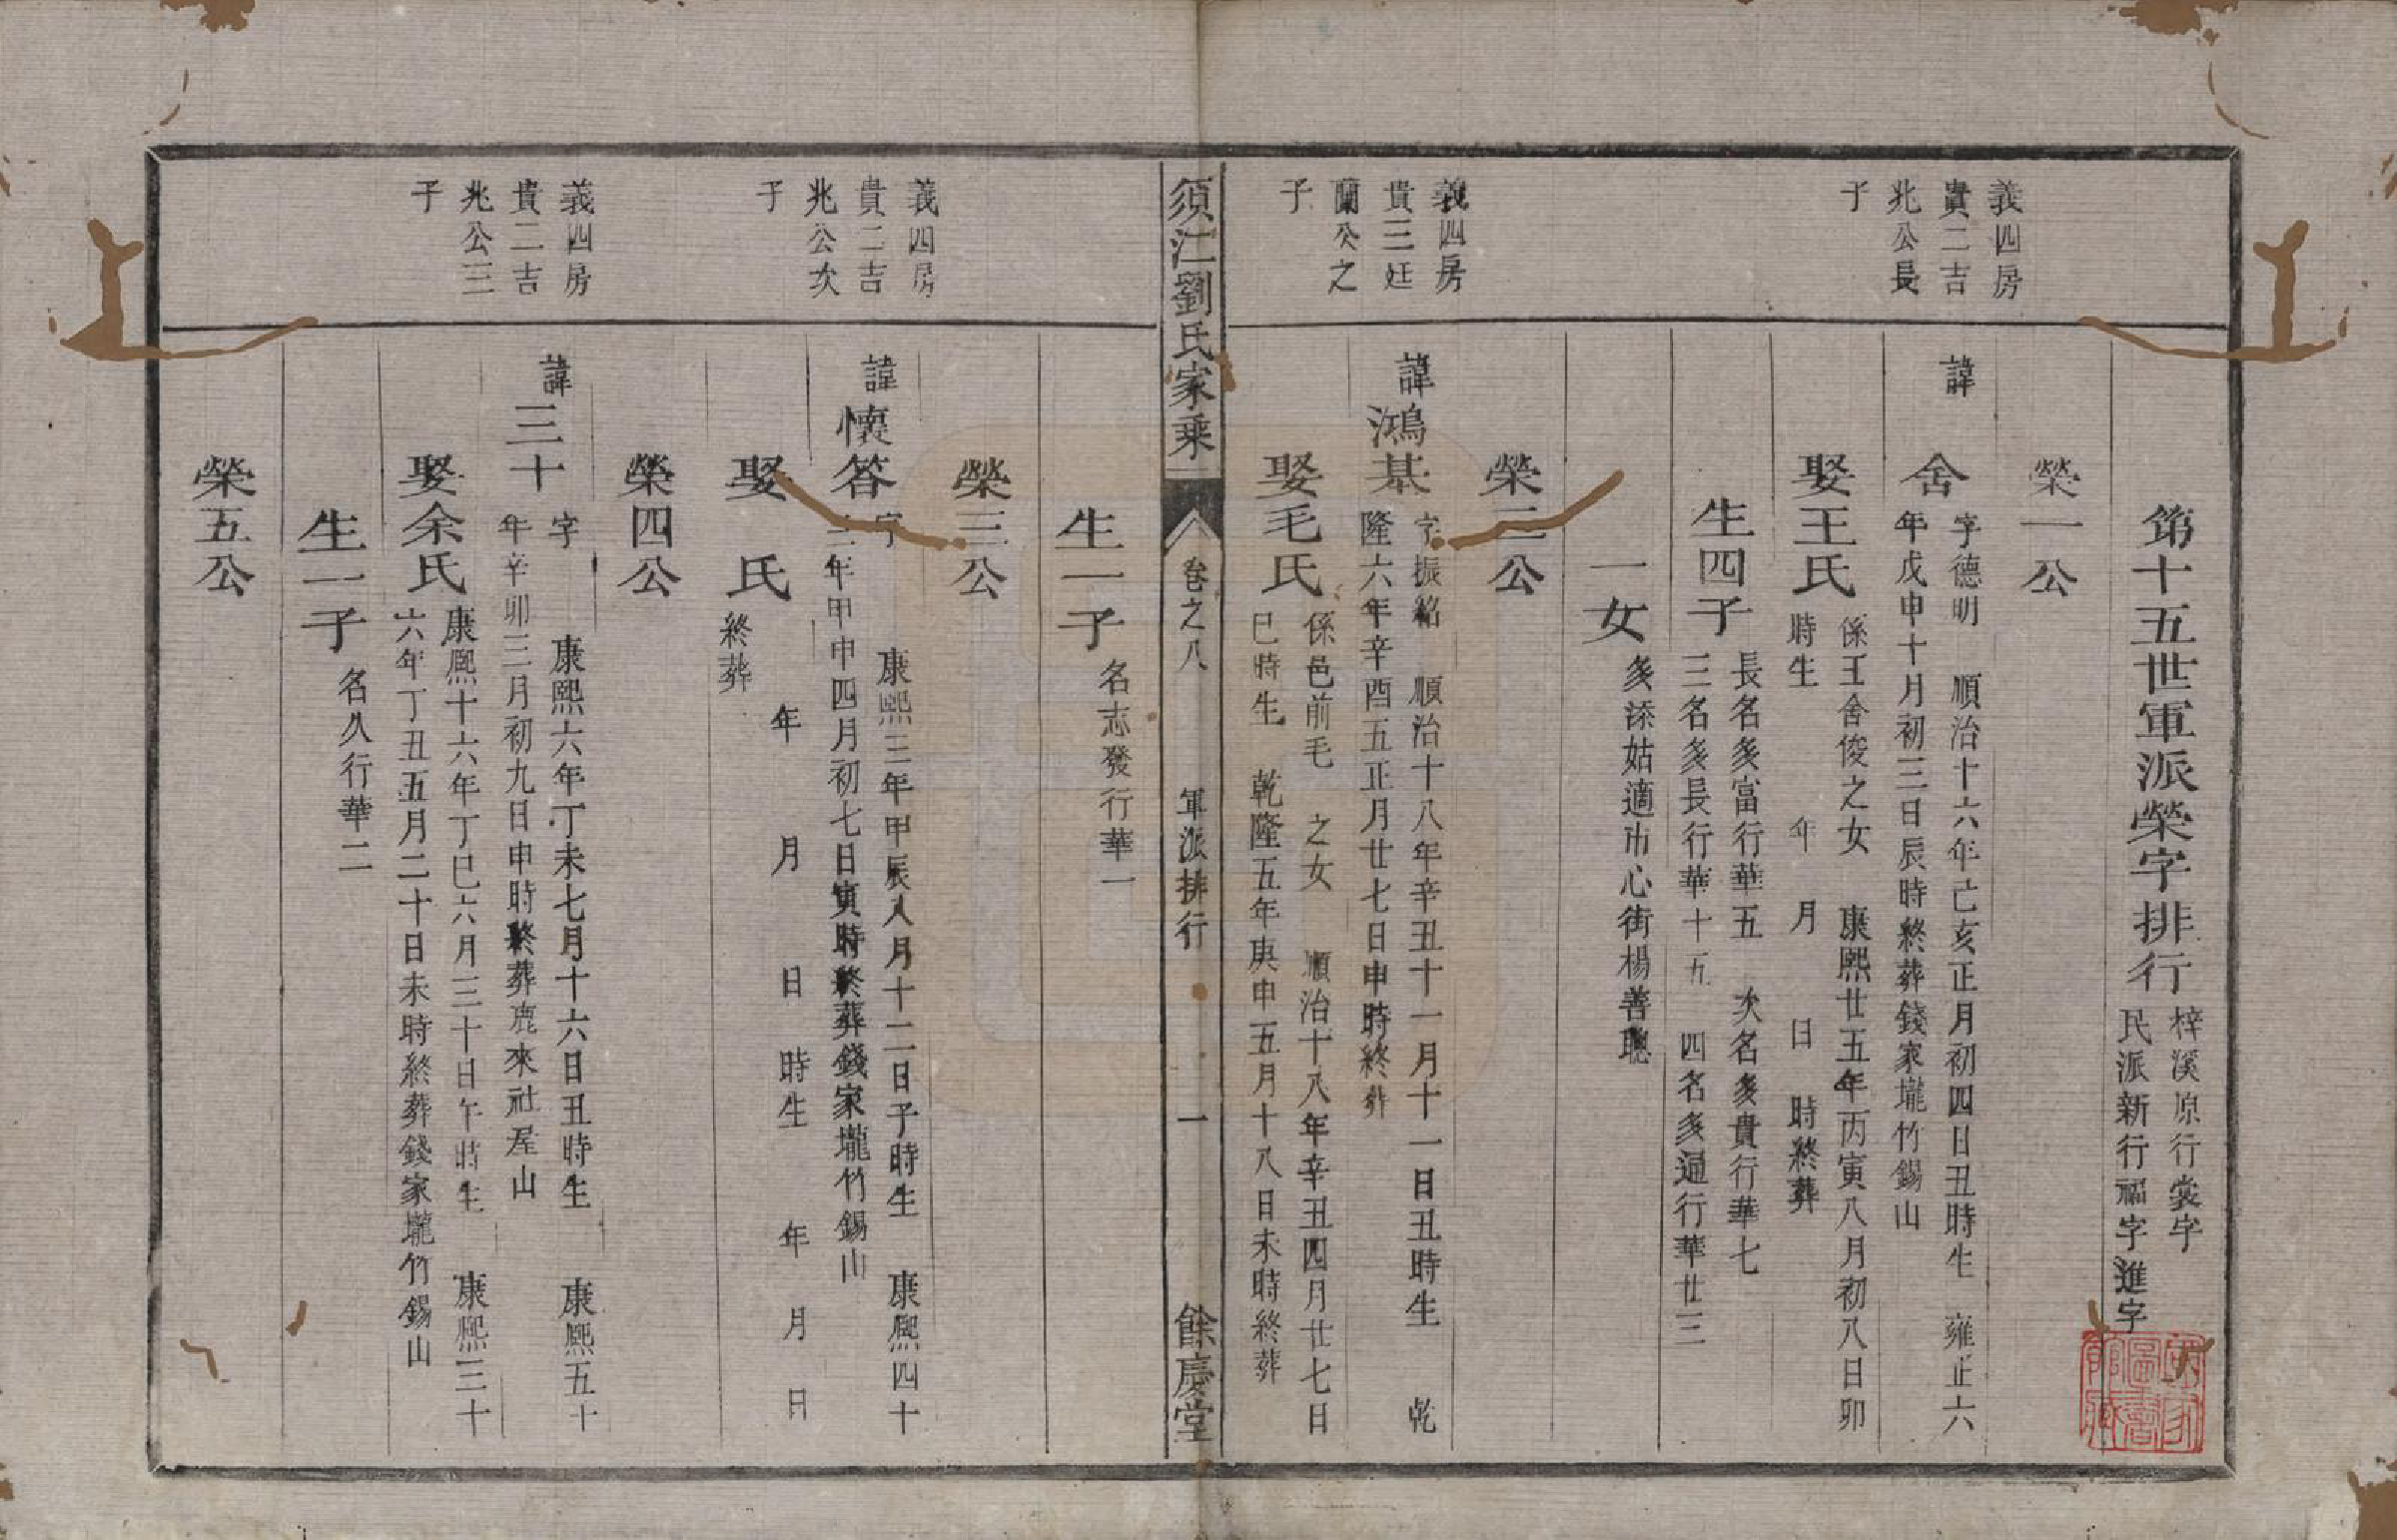 第十五世軍派榮字排行
梓溪原行裳字
民派新行福字進字
榮一公
義四房
貴二吉
兆公長
子
諱舍
字德明 順治十六年己亥正月初四日丑時生 雍正六
年戊申十月初三日辰時終葬錢家壠竹錫山
娶王氏
係王舍俊之女 康熙廿五年丙寅八月初八日卯
時生 年 月 日 時終葬
生四子
長名多富行華五 次名多貴行華七
三名多長行華十五 四名多通行華廿三
一女
多添姑適市心街楊善聰
榮二公
義四房
貴三廷
蘭公之
子
諱鴻基
字振銘 順治十八年辛丑十一月十一日丑時生 乾
隆六年辛酉五正月廿七日申時終葬
娶毛氏
係邑前毛 之女 順治十八年辛丑四月廿七日
巳時生 乾隆五年庚申五月十八日未時終葬
須江劉氏家乘
卷之八
軍派排行
一
餘慶堂
生一子
名志發行華一
榮三公
義四房
貴二吉
兆公次
子
諱懷答
字 康熙三年甲辰八月十二日子時生 康熙四十
三年甲申四月初七日寅時終葬錢家壠竹錫山
娶 氏
年 月 日 時生 年 月 日
終葬
榮四公
義四房
貴二吉
兆公三
子
諱三十
字 康熙六年丁未七月十六日丑時生 康熙五十
年辛卯三月初九日申時終葬鹿來社屋山
娶余氏
康熙十六年丁巳六月三十日午時生 康熙三十
六年丁丑五月二十日未時終葬錢家壠竹錫山
生一子
名久行華二
榮五公